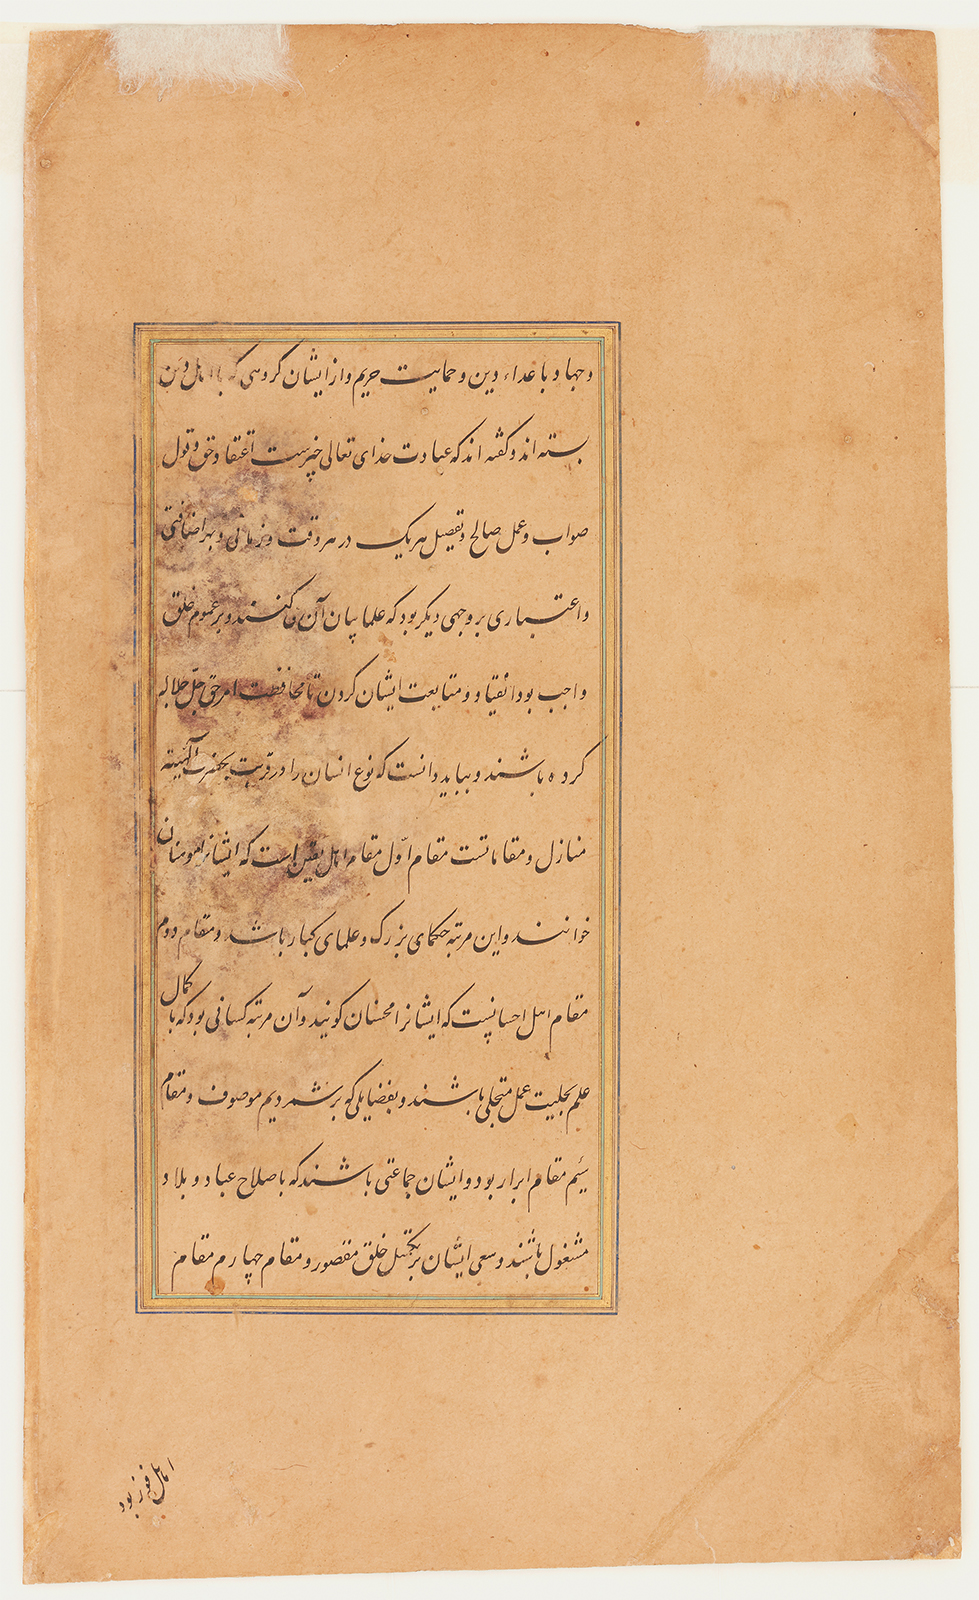 وجهاد با عداء دین و حمایت حریم و از ایشان کروهی که با اهل دین
بسته اند و کفته اند که عبادت خدای تعالی سه چیزست اعتقاد حق و قول
صواب و عمل صالح و تفصیل هریک در هر وقت و زمانی و بهر اضافتی
و اعتباری بر وجهی دیکر بود که علما بیان آن کنند و بر عموم خلق
واجب بود انقیاد و متابعت ایشان کردن تا محافظت امر حق جل جلاله
کرده باشند و بباید دانست که نوع انسان را در قربت بحضرت الهیته
منازل و مقاماتست مقام اول مقام اهل یقین است که ایشانرا موسنان
خوانند و این مرتبه حکمای بزرک و علمای کبار باشد و مقام دوم
مقام اهل احسانست که ایشانرا محسنان کویند و آن مرتبه کسانی بود که با کمال
علم بحلیت عمل متحلی باشند و بفضایلی که برشمردیم موصوف و مقام
سیم مقام ابرار بود و ایشان جماعتی باشند که باصلاح عباد و بلاد
مشغول باشند و سعی ایشان بر تکمیل خلق مقصور و مقام چهارم مقام
اهل فوز بود